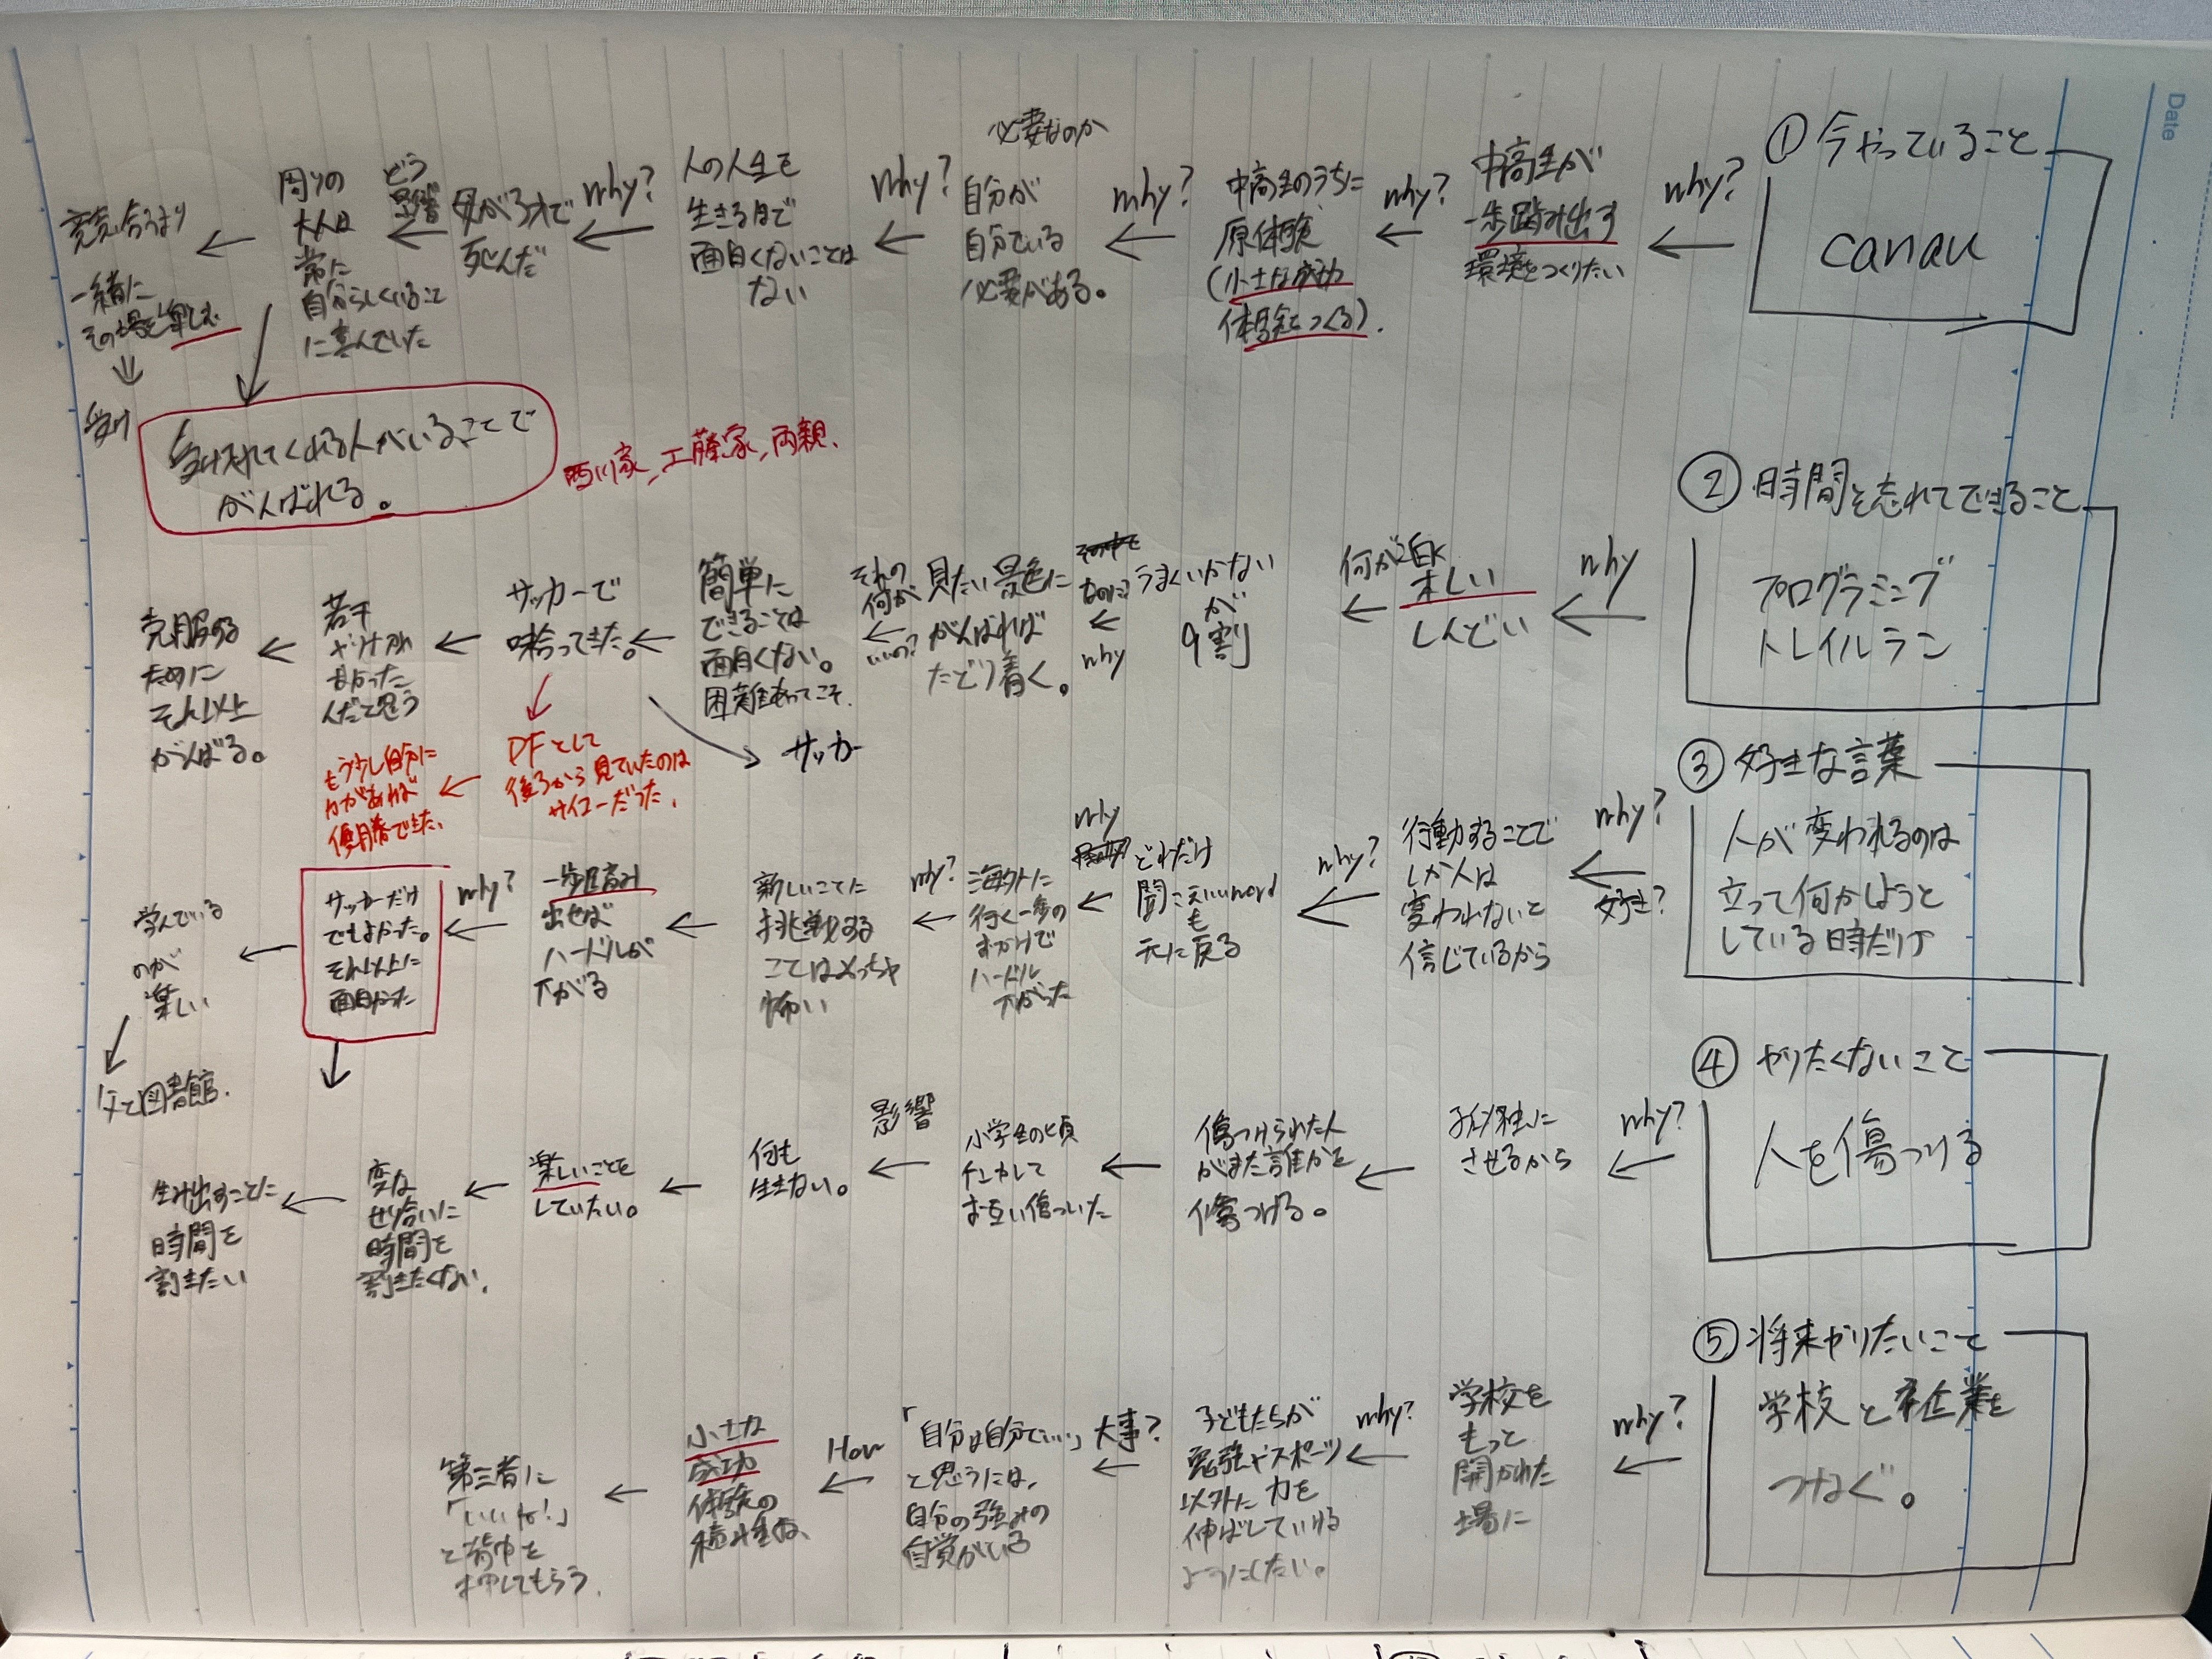 Date
①今やっていること
canau
why?
中高生が
一歩踏み出す
環境をつくりたい
why?
中高生のうちに
原体験
(小さな成功
体験をつくる).
why?
必要なのか
自分が
自分でいる
必要がある。
why?
人の人生を
生きるほで
面白くないことは
ない
why?
母が3才で
死んだ
どう
影響
周りの
大人は
常に
自分らしくいること
に喜んでいた
競い合うより
一緒に
その場を楽しむ
受け
受け入れてくれる人がいることで
がんばれる。
西川家、工藤家、両親、
②時間を忘れてできること
プログラミング
トレイルラン
why
何が面白く
楽しい
しんどい
うまくいかない
が
9割
なのに?
why
見たい景色に
がんばれば
たどり着く。
それの
何が
いいの?
簡単に
できることは
面白くない。
困難あってこそ.
サッカーで
味合ってきた。
サッカー
若干
人だと思う
克服する
ために
それ以上
がんばる。
DFとして
後ろから見ていたのは
サイコーだった.
もう少し自分に
力があれば
優勝できた.
③好きな言葉
人が変われるのは
立って何かしようと
している時だけ
why?
好き?
行動することで
しか人は
変われないと
信じているから
why?
どれだけ
聞こえいいword
も
元に戻る
why
海外に
行く一歩の
おかげで
ハードル
下がった
why?
新しいことに
挑戦する
ことはめっちゃ
怖い
一歩踏み
出せば
ハードルが
下がる
why?
サッカーだけ
でもよかった。
それ以上に
面白かった
学んでいる
のが
楽しい
父と図書館.
④やりたくないこと
人を傷つける
why?
孤独に
させるから
傷つけられた人
がまた誰かを
傷つける。
小学生の頃
ケンカして
お互い傷ついた
影響
何も
生まない。
楽しいことを
していたい。
変な
せり合いに
時間を
割きたくない.
生み出すことに
時間を
割きたい
⑤将来やりたいこと
学校と企業を
つなぐ。
why?
学校を
もっと
開かれた
場に
why?
子どもたちが
勉強やスポーツ
以外に力を
伸ばしていける
ようにしたい。
大事?
「自分は自分でいい」
と思うには,
自分の強みの
自覚がいる
How
小さな
成功
体験の
積み重ね
第三者に
「いいね!」
と背中を
押してもらう.